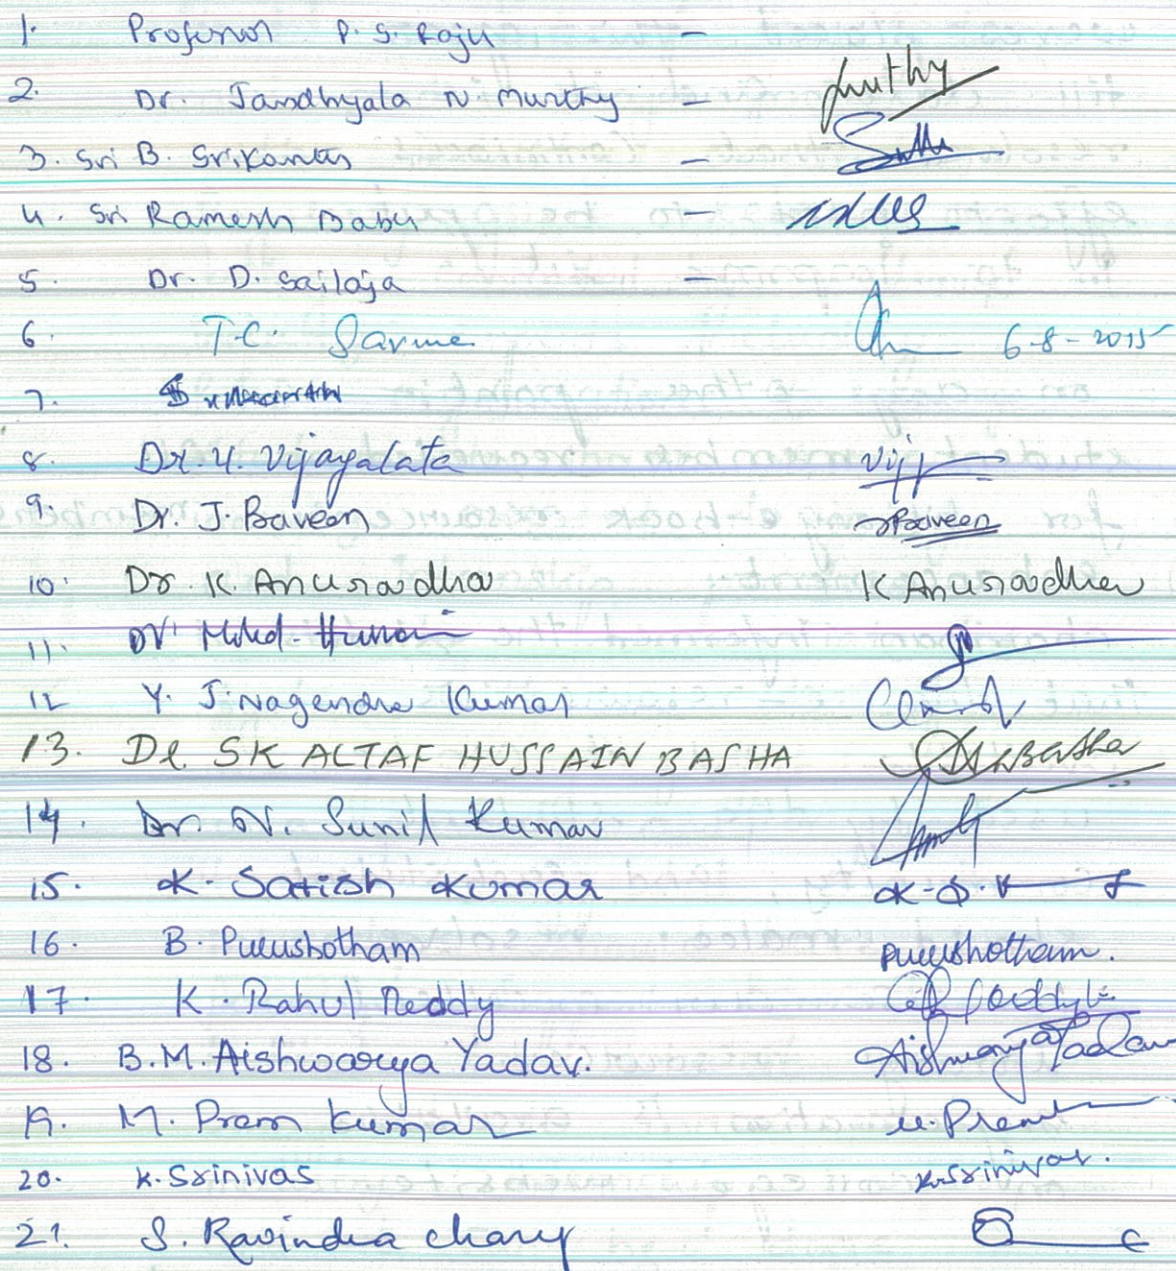 1. Professor P. S. Raju -
2. Dr. Jandhyala N Murthy - Murthy
3. Sri B. Srikanth -
4. Sri Ramesh Babu -
5. Dr. D. Sailaja -
6. T.C. Sarma 6-8-2015
7.
8. Dr. Y. Vijayalata Vijj
9. Dr. J. Praveen Praveen
10. Dr. K. Anuradha K Anuradha
11. Dr. Mohd. Hussain
12 Y. J. Nagendra Kumar
13. Dr. SK ALTAF HUSSAIN BASHA
14. Dr. N. Sunil Kumar
15. K. Satish Kumar K.S.K
16. B. Purushotham Purushotham.
17. K. Rahul Reddy
18. B.M. Aishwarya Yadav. Aishwarya Yadav
19. M. Prem Kumar M. Prem
20. K. Srinivas K. Srinivas.
21. S. Ravindra Chary